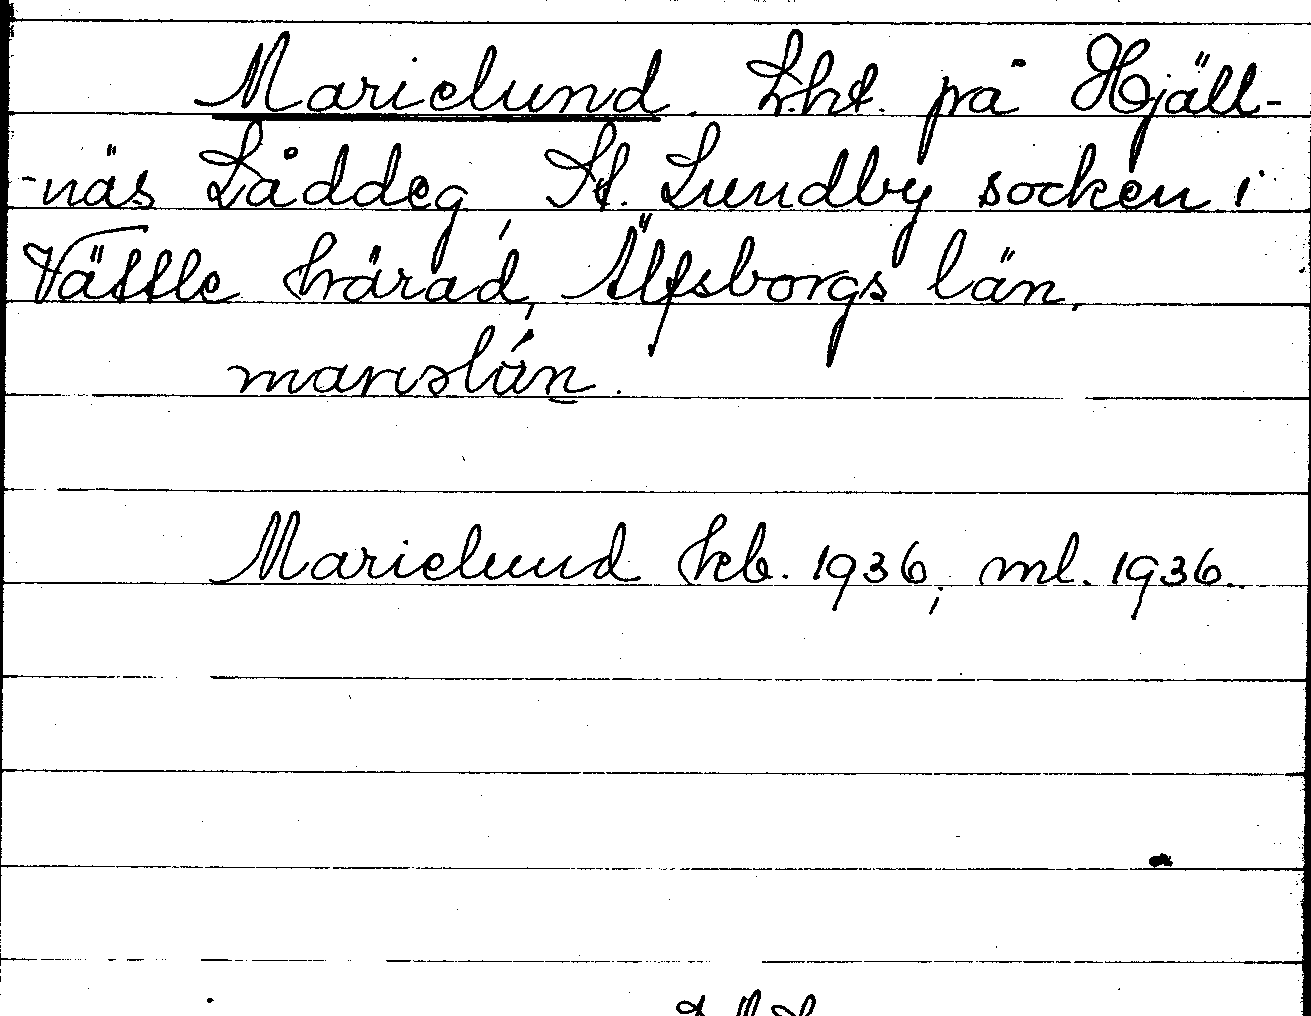 Marielund. Lht. på Hjäll-
-näs Låddeg, St. Lundby socken i
Vättle härad, Älfsborgs län.
marislún.
Marielund hcb. 1936, ml. 1936.